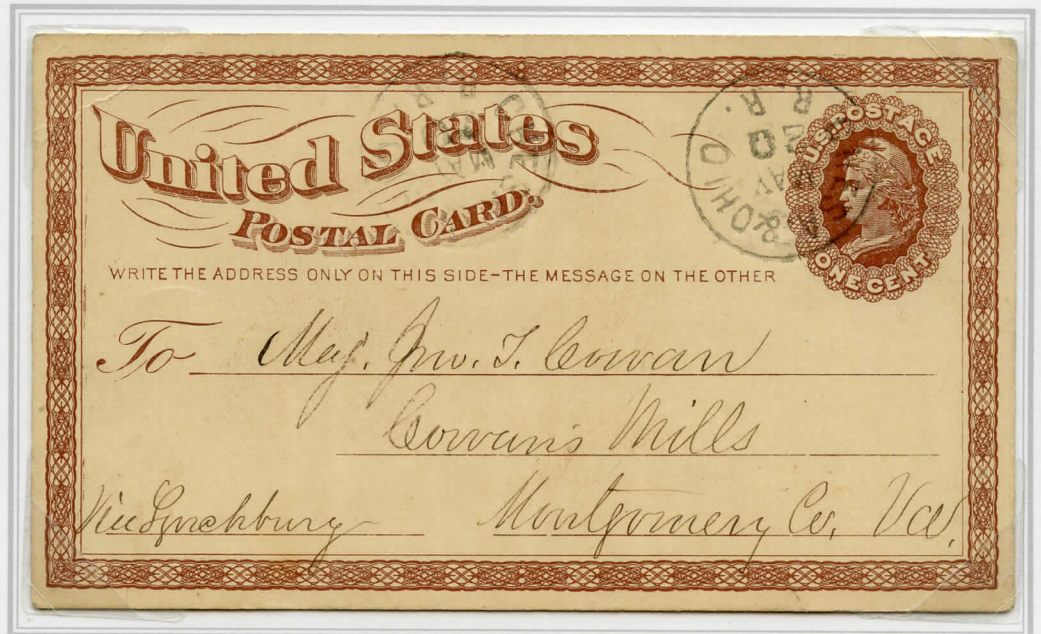 United States
POSTAL CARD.
U.S. POSTAGE
ONE CENT
WRITE THE ADDRESS ONLY ON THIS SIDE-THE MESSAGE ON THE OTHER
To Maj. Jno. T. Cowan
Cowan's Mills
Via Lynchburg Montgomery Co. Va.
& OHIO
R.R.
MAY
20
MAY